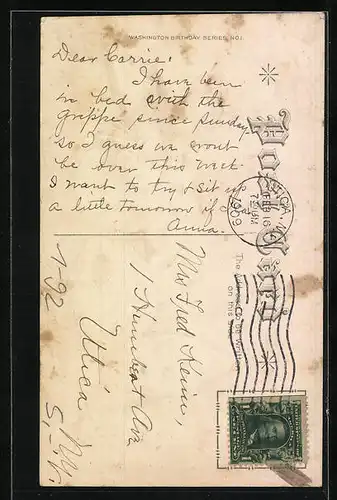 WASHINGTON BIRTHDAY SERIES NO.1.
Dear Carrie:
I have been
in bed with the
grippe since Sunday
so I guess we wont
be over this week
I want to try & sit up
a little tomorrow if I
Anna.
UTICA, N.Y.
FEB 16
7 PM
1909
Mrs Fred
1 Humbert Ave
Utica
N.Y.
1-92